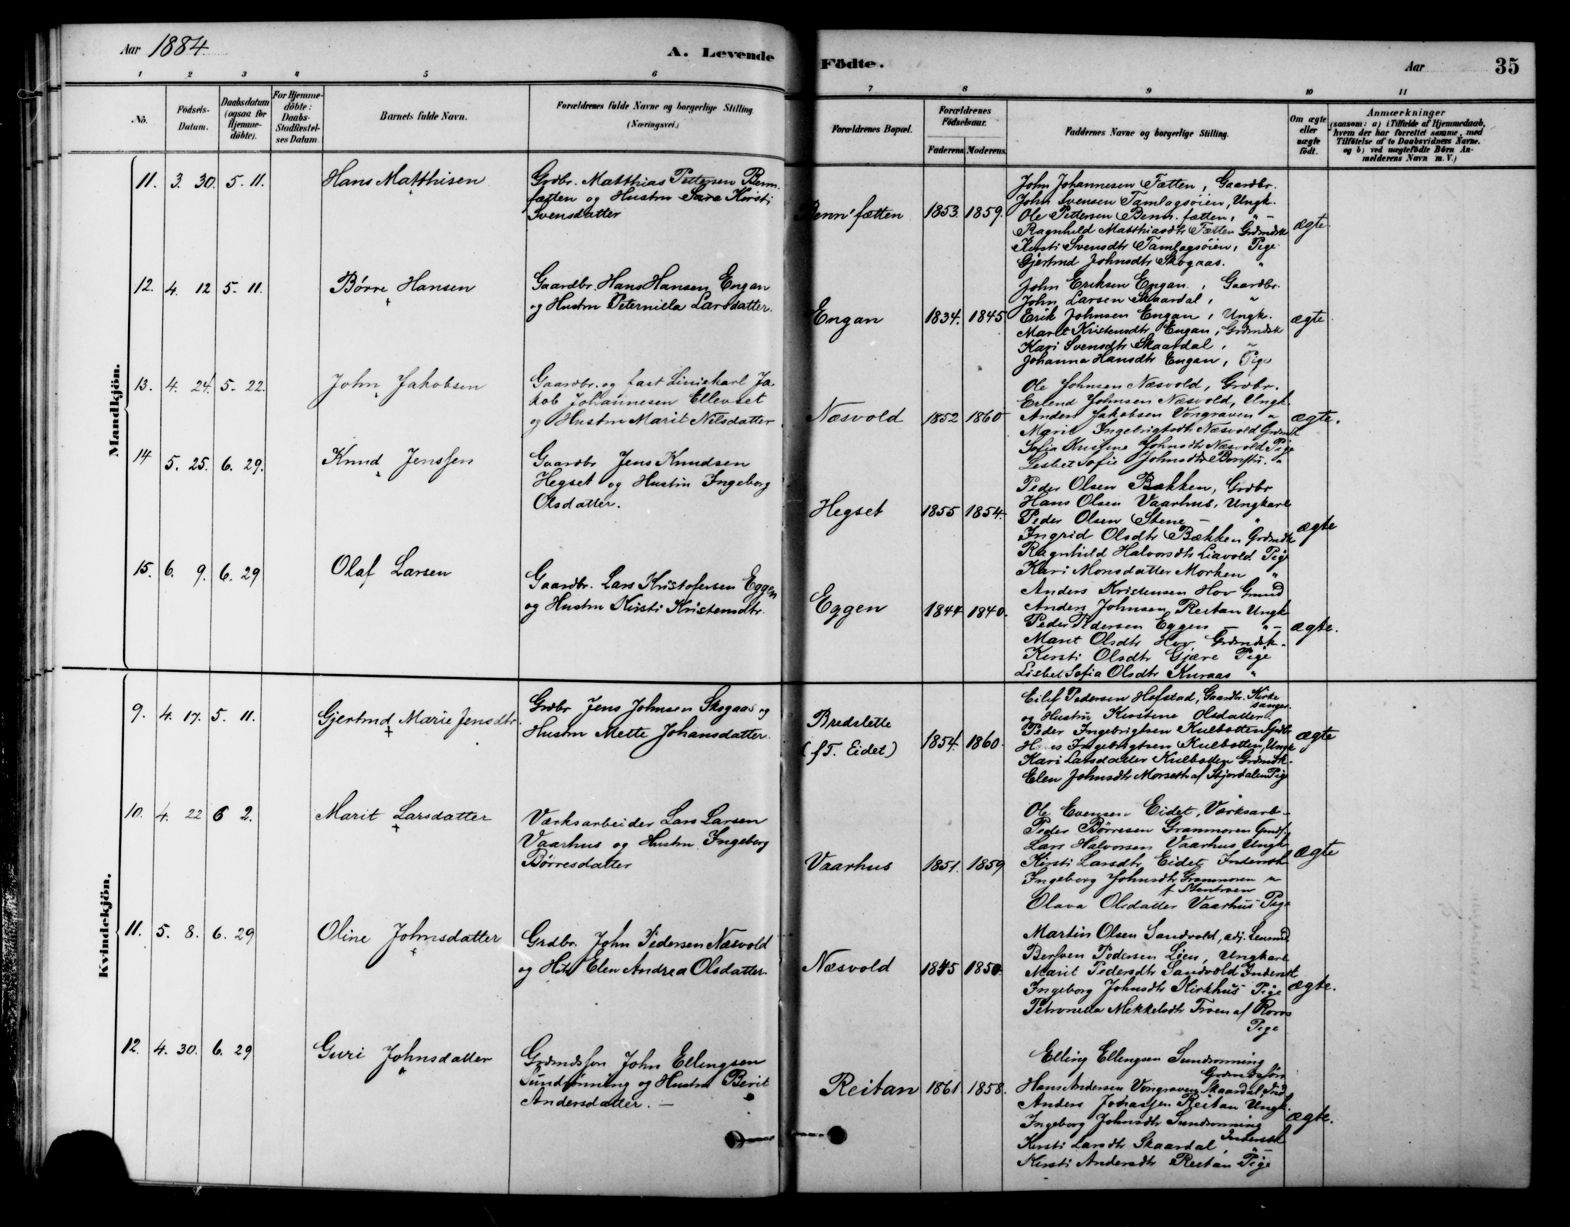 Aar 1884.
A. Levende
Födte.
Aar
35
1 2 3 4 5 6
7 8 9 10 11
No.
Födsels-
Datum.
Daabsdatum
(ogsaa for
Hjemme-
döbte).
For Hjemme-
döbte:
Daabs-
Stadfæstel-
ses Datum.
Barnets fulde Navn.
Forældrenes fulde Navne og borgerlige Stilling
(Næringsvei.)
Forældrenes Bopæl.
Forældrenes
Födselsaar.
Faderens. Moderens.
Faddernes Navne og borgerlige Stilling.
Om ægte
eller
uægte
födt.
Anmærkninger
(saasom: a) i Tilfælde af Hjemmedaab,
hvem der har forrettet samme, med
Tilföielse af to Daabsvidners Navne.
og b) ved uægtefödte Börn An-
melderens Navn m. V.)
Mandkjön.
11. 3. 30. 5. 11.
Hans Matthisen
Grdbr. Matthias Pettersen Benn-
fætten og Hustru Sara Kirsti
Svensdatter
Benn' fætten
1853. 1859.
John Johannesen Fætten, Gaardbr.
John Svensen Tamlagsøien, Ungk.
Ole Pettersen Benn. fætten, "
Ragnhild Matthiasdtr Fætten Grdmdsk
Kirsti Svensdtr Tamlagsøien, Pige
Gjertrud Johnsdtr Skogaas. "
ægte
12. 4. 12 5. 11.
Børre Hansen
Gaardbr. Hans Hansen Engan
og Hustru Peternilla Larsdatter.
Engan
1834. 1845
John Eriksen Engan, Gaardbr.
John Larsen Skaardal, "
Erik Johnsen Engan, Ungk.
Marit Kristensdtr Engan, Grdmdsk
Kari Svensdtr Skaardal, "
Johanna Hansdtr Engan, Pige
ægte
13. 4. 24. 5. 22.
John Jakobsen
Gaardbr. og fast Liniekarl Ja-
kob Johannesen Ellevset
og Hustru Marit Nilsdatter
Næsvold
1852 1860
Ole Johnsen Næsvold, Grdbr.
Erlend Johnsen Næsvold, Ungk.
Anders Jakobsen Vongraven "
Marit Ingebrigtsdtr Næsvold Grdmdsk
Sofia Johnsdtr Næsvold Pige
Lisbet Sofie Johnsdtr "
ægte.
14 5. 25. 6. 29.
Knud Jenssen
Gaardbr Jens Knudsen
Hegset og Hustru Ingeborg
Olsdatter.
Hegset
1855 1854.
Peder Olsen Bækken, Grdbr
Hans Olsen Vaarhus, Ungkarl
Peder Olsen Stene — "
Ingrid Olsdtr Bækken Grdmdsk
Ragnhild Halvorsdtr Liavold Pige
Kari Monsdatter Morken "
ægte
15. 6. 9. 6. 29
Olaf Larsen
Gaardbr. Lars Kristofersen Eggen
og Hustru Kirsti Kristensdtr.
Eggen
1844 1840.
Anders Kristensen Hov Grmd
Anders Johnsen Reitan Ungk
Peder Pedersen Eggen — " —
Marit Olsdtr Hov Grdmdsk.
Kirsti Olsdtr Gjære Pige
Lisbet Sofia Olsdtr Kuraas "
ægte.
Kvindekjön.
9. 4. 17. 5. 11.
Gjertrud Marie Jensdtr.
Grdbr Jens Johnsen Skogaas og
Hustru Mette Johansdatter.
Bredslette
(f.T. Eidet)
1854. 1860.
Eilef Pedersen Hofstad, Gaardbr. Kirke
sanger
og Hustru Kirstine Olsdatter
Peder Ingebrigtsen Kulbotten Grdbr
Hans Ingebrigtsen Kulbotten, Ungk
Kari Larsdatter Kulbotten Grdmdsk.
Elen Johnsdtr Morseth af Stjørdalen Pige
ægte
10. 4. 22 6 2.
Marit Larsdatter
Værksarbeider Lars Larsen
Vaarhus og Hustru Ingeborg
Børresdatter
Vaarhus
1851. 1859
Ole Evensen Eidet, Værksarb-
Peder Børresen Granmoren
Lars Halvorsen Vaarhus Ungk
Kirsti Larsdtr Eidet Inderstk
Ingeborg Johnsdtr Granmoren "
Olava Olsdatter Vaarhus Pige
ægte
11. 5. 8. 6. 29
Oline Johnsdatter
Grdbr. John Pedersen Næsvold
og Hstr Elen Andrea Olsdatter
Næsvold
1845 1850.
Martin Olsen Sandvold, adj. Lensmd.
Bersven Pedersen Lien, Ungkarl
Marit Pedersdtr Sandvold Inderstk
Ingeborg Johnsdtr Kirkhus Pige
Petronella Mikkelsdtr Troen af Røros
Pige
ægte.
12. 4. 30. 6. 29
Guri Johnsdatter
Grdmdssøn John Ellingsen
Sundrønning og Hustru Berit
Andersdatter. —
Reitan
1861. 1858.
Elling Ellengsen Sundrønning
Hans Andersen Vongraven Skaardal
Anders Johnssen Reitan Ungk.
Ingeborg Johnsdtr Sundrønning
Inderstk
Kirsti Larsdtr Skaardal, "
Kirsti Andersdtr Reitan Pige
ægte.